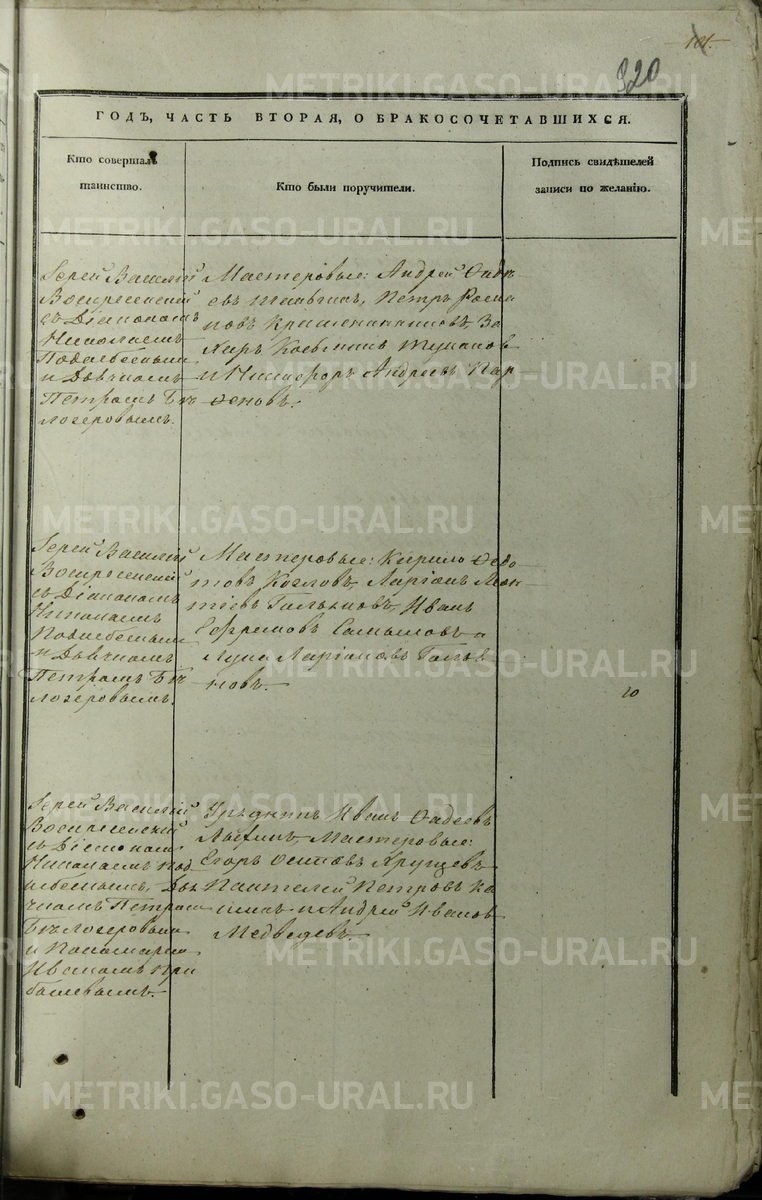 101.
320
ГОДЪ, ЧАСТЬ ВТОРАЯ, О БРАКОСОЧЕТАВШИХСЯ.
Кто совершалъ
таинство.
Кто были поручители.
Подпись свидѣтелей
записи по желанію.
Іерей Василій
Воскресенскій
съ Діакономъ
Николаемъ
Поднебеснымъ
и Дьячкомъ
Петромъ Бѣ
лозеровымъ.
Мастеровые: Андрей
евъ Петръ Рома
новъ За
харъ
и Никифоръ Андреевъ Пар
ѳеновъ.
Іерей Василій
Воскресенскій
съ Діакономъ
Николаемъ
Поднебеснымъ
и Дьячкомъ
Петромъ Бѣ
лозеровымъ.
Мастеровые: Кирило Ѳедо
товъ Козловъ, Ларіонъ Мак
Иванъ
Ефремовъ
Лука Ларіоновъ
новъ.
20
Іерей Василій
Воскресенскій
съ Діакономъ
Николаемъ Под
небеснымъ, Дья
чкомъ Петромъ
Бѣлозеровымъ
и Пономаремъ
Иваномъ При
баловымъ.
Иванъ Ѳадеевъ
Мастеровые:
Егоръ Осиповъ
Пантелей Петровъ Ка
и Андрей Ивановъ
Медведевъ.
METRIKI.GASO-URAL.RU